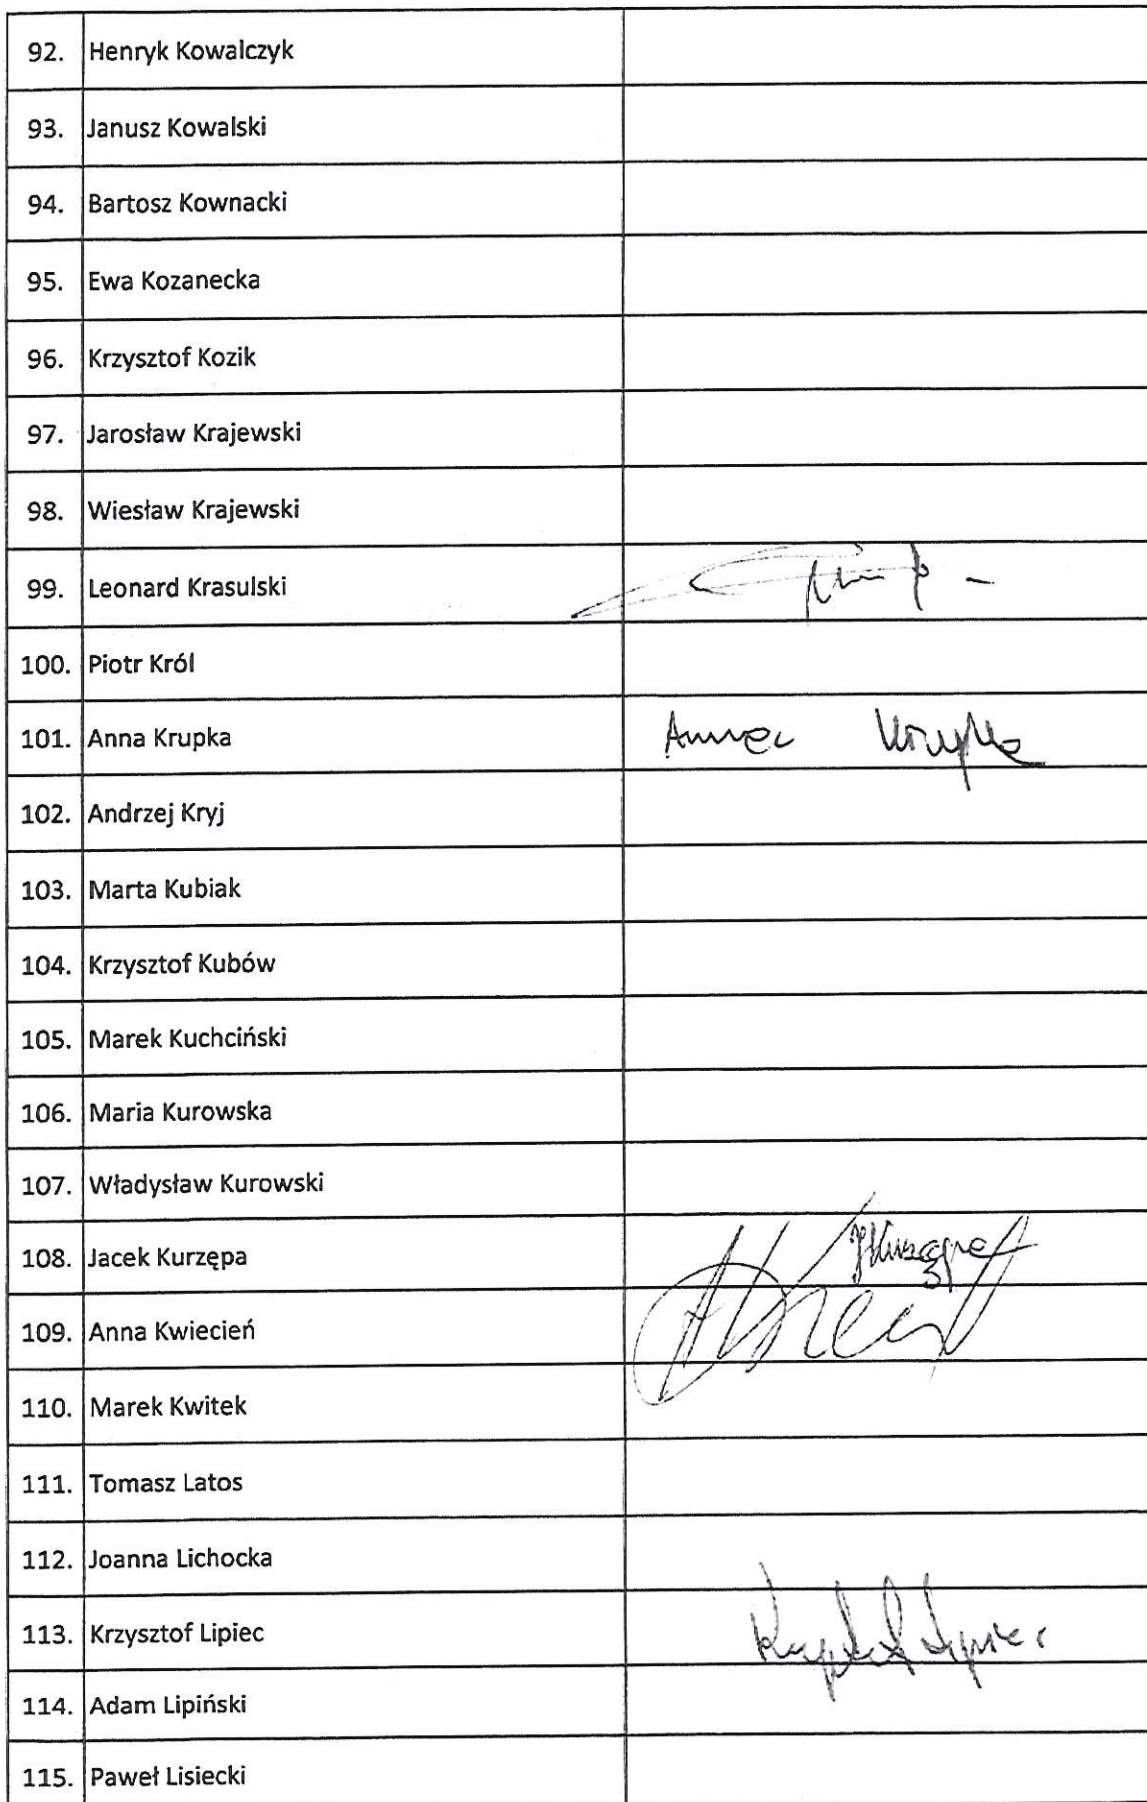 92. Henryk Kowalczyk
93. Janusz Kowalski
94. Bartosz Kownacki
95. Ewa Kozanecka
96. Krzysztof Kozik
97. Jarosław Krajewski
98. Wiesław Krajewski
99. Leonard Krasulski
100. Piotr Król
101. Anna Krupka Anna Krupka
102. Andrzej Kryj
103. Marta Kubiak
104. Krzysztof Kubów
105. Marek Kuchciński
106. Maria Kurowska
107. Władysław Kurowski
108. Jacek Kurzępa
109. Anna Kwiecień
110. Marek Kwitek
111. Tomasz Latos
112. Joanna Lichocka
113. Krzysztof Lipiec Krzysztof Lipiec
114. Adam Lipiński
115. Paweł Lisiecki